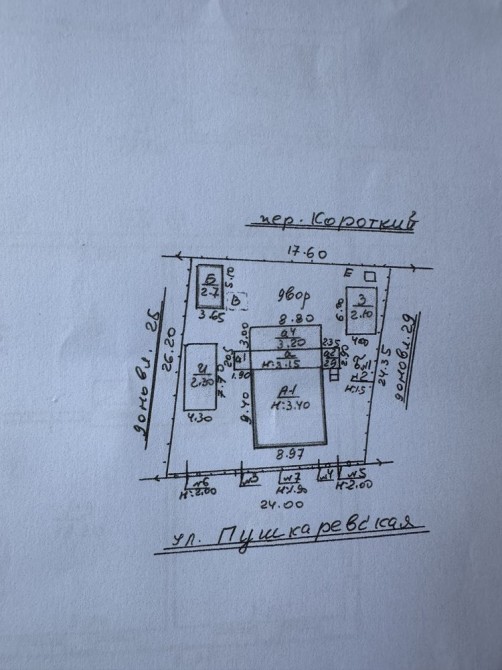 пер. Короткий
17.60
Б
2.7
3.65
В
двор
Е
З
2.10
6.80
8.80
а4
3.20
3.00
а
н:3.15
А-1
н:3.40
9.40
8.97
И
2.30
4.30
1.90
домовл. 25
26.20
24.35
домовл. 29
н:1.5
№6
н:2.00
№3
№7
н:1.90
№4
№5
н:2.00
24.00
ул. Пушкаревская